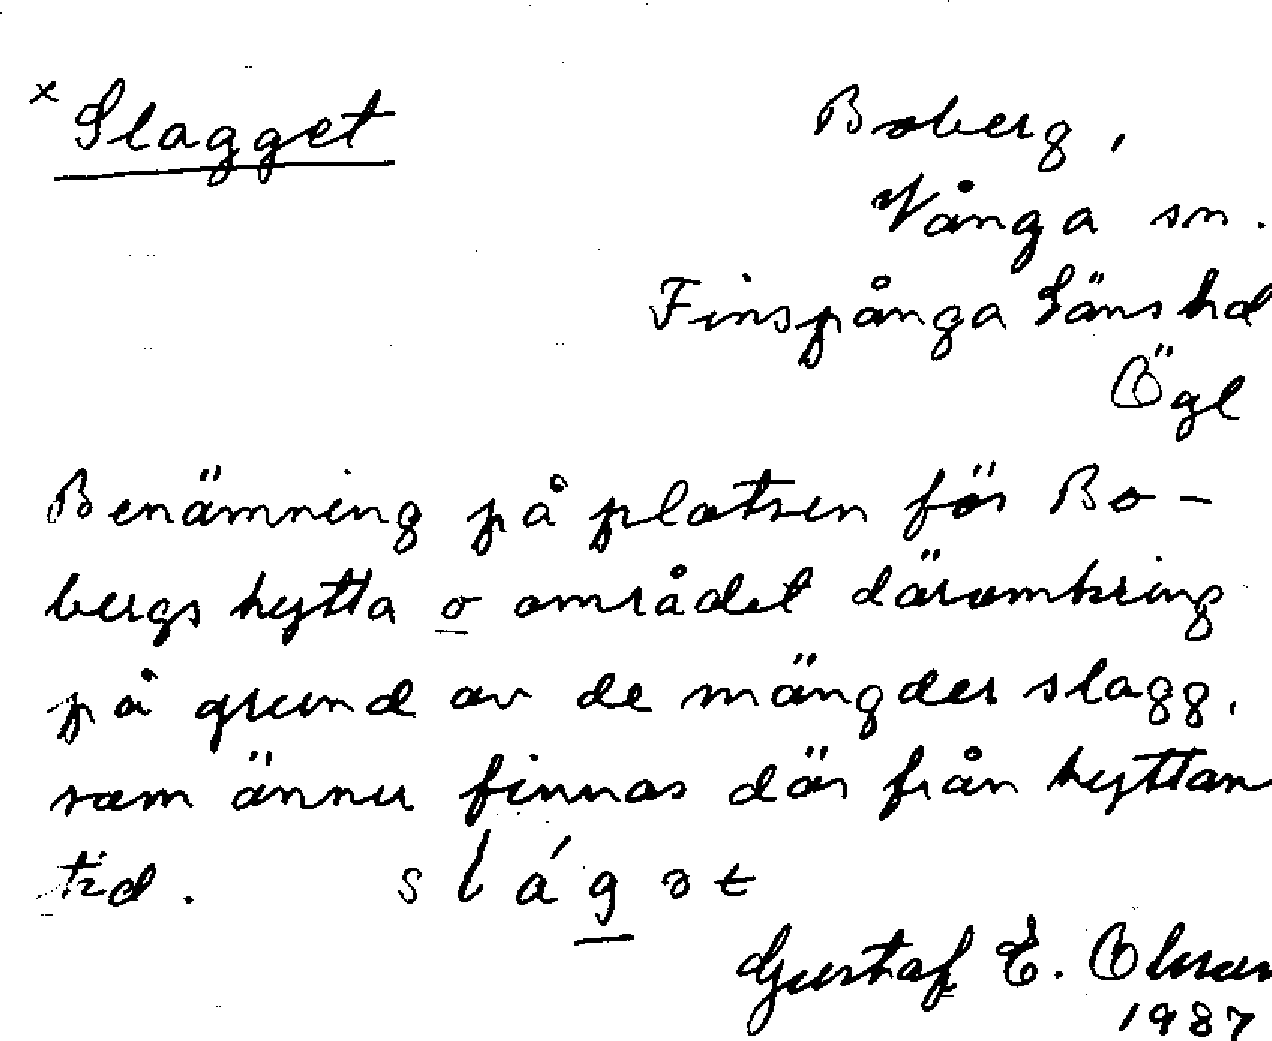 x Slagget
Boberg,
Vånga sn.
Finspånga länshd
Ögl
Benämning på platsen för Bo-
bergs hytta o området däromkring
på grund av de mängder slagg,
som ännu finnas där från hyttan
tid.
slágət
Gustaf E. Olsson
1987